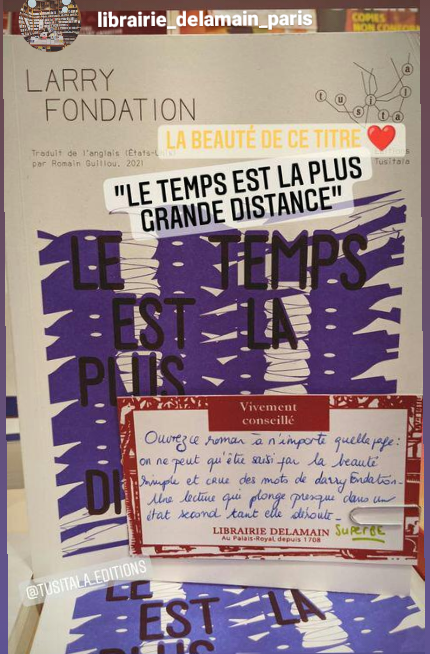 librairie_delamain_paris
COPIES
LARRY
FONDATION
t u s i t a l a
LA BEAUTÉ DE CE TITRE ❤️
Traduit de l'anglais (États-
par Romain Guillou, 2021
Tusitala
"LE TEMPS EST LA PLUS
GRANDE DISTANCE"
LE TEMPS
EST LA
PLUS
Vivement
conseillé
Ouvrez ce roman à n'importe quelle page :
on ne peut qu'être saisi par la beauté
simple et crue des mots de Larry Fondation.
Une lecture qui plonge presque dans un
état second tant elle déroute.
SUPERBE
LIBRAIRIE DELAMAIN
Au Palais-Royal, depuis 1708
DI
@TUSITALA.EDITIONS
LE
EST LA